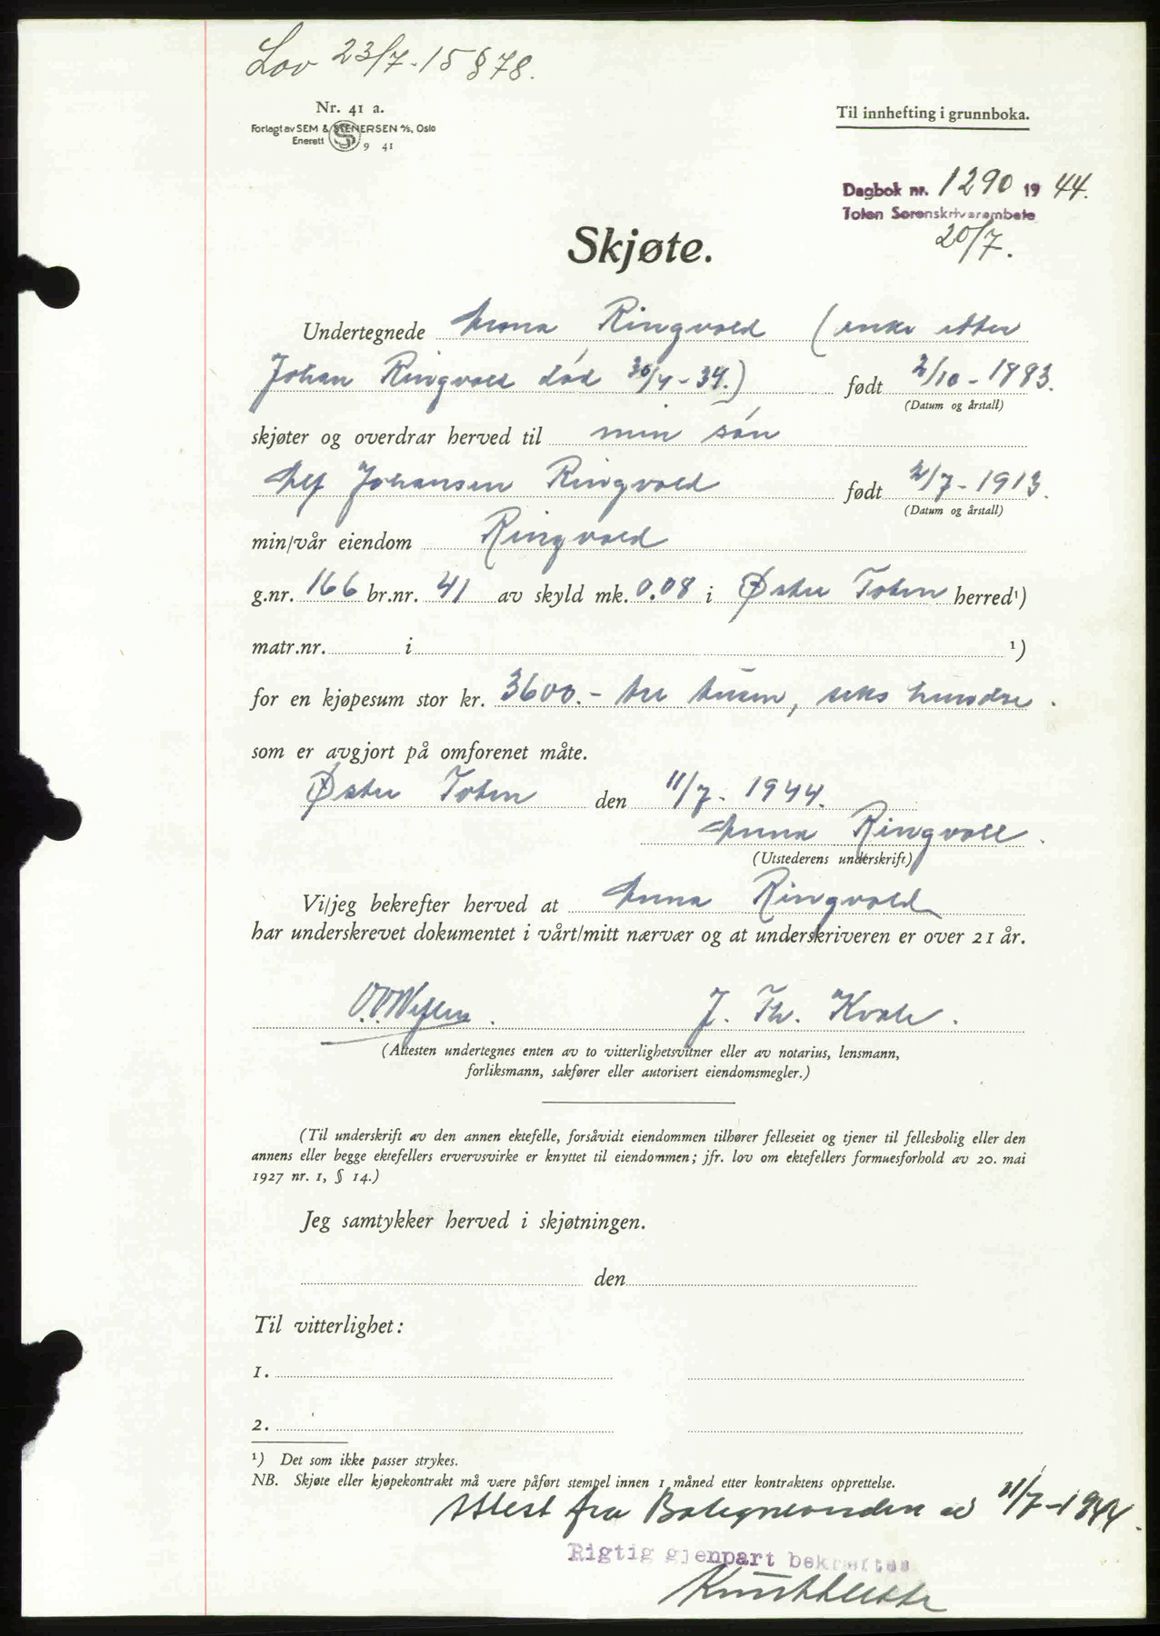 Lov 23/7-15 § 78.
Nr. 41 a.
Forlagt av SEM & STENERSEN A/S, Oslo
Enerett 9 41
Til innhefting i grunnboka.
Dagbok nr. 1290 1944.
Toten Sorenskriverembete
20/7.
Skjøte.
Undertegnede Anna Ringvold (enke etter
Johan Ringvold død 30/4-34.) født 2/10-1883.
(Datum og årstall)
skjøter og overdrar herved til min søn
Alf Johansen Ringvold født 2/7-1913.
(Datum og årstall)
min/vår eiendom Ringvold
g.nr. 166 br.nr. 41 av skyld mk. 0.08 i Østre Toten herred¹)
matr.nr. i ¹)
for en kjøpesum stor kr. 3600.- tre tusen, seks hundre.
som er avgjort på omforenet måte.
Østre Toten den 11/7-1944.
Anna Ringvold.
(Utstederens underskrift)
Vi/jeg bekrefter herved at Anna Ringvold
har underskrevet dokumentet i vårt/mitt nærvær og at underskriveren er over 21 år.
J. Th. Kvale.
(Attesten undertegnes enten av to vitterlighetsvitner eller av notarius, lensmann,
forliksmann, sakfører eller autorisert eiendomsmegler.)
(Til underskrift av den annen ektefelle, forsåvidt eiendommen tilhører felleseiet og tjener til fellesbolig eller den
annens eller begge ektefellers ervervsvirke er knyttet til eiendommen; jfr. lov om ektefellers formuesforhold av 20. mai
1927 nr. 1, § 14.)
Jeg samtykker herved i skjøtningen.
den
Til vitterlighet:
1.
2.
¹) Det som ikke passer strykes.
NB. Skjøte eller kjøpekontrakt må være påført stempel innen 1 måned etter kontraktens opprettelse.
Attest fra Bolignevnden av 11/7-1944.
Rigtig gjenpart bekræftes